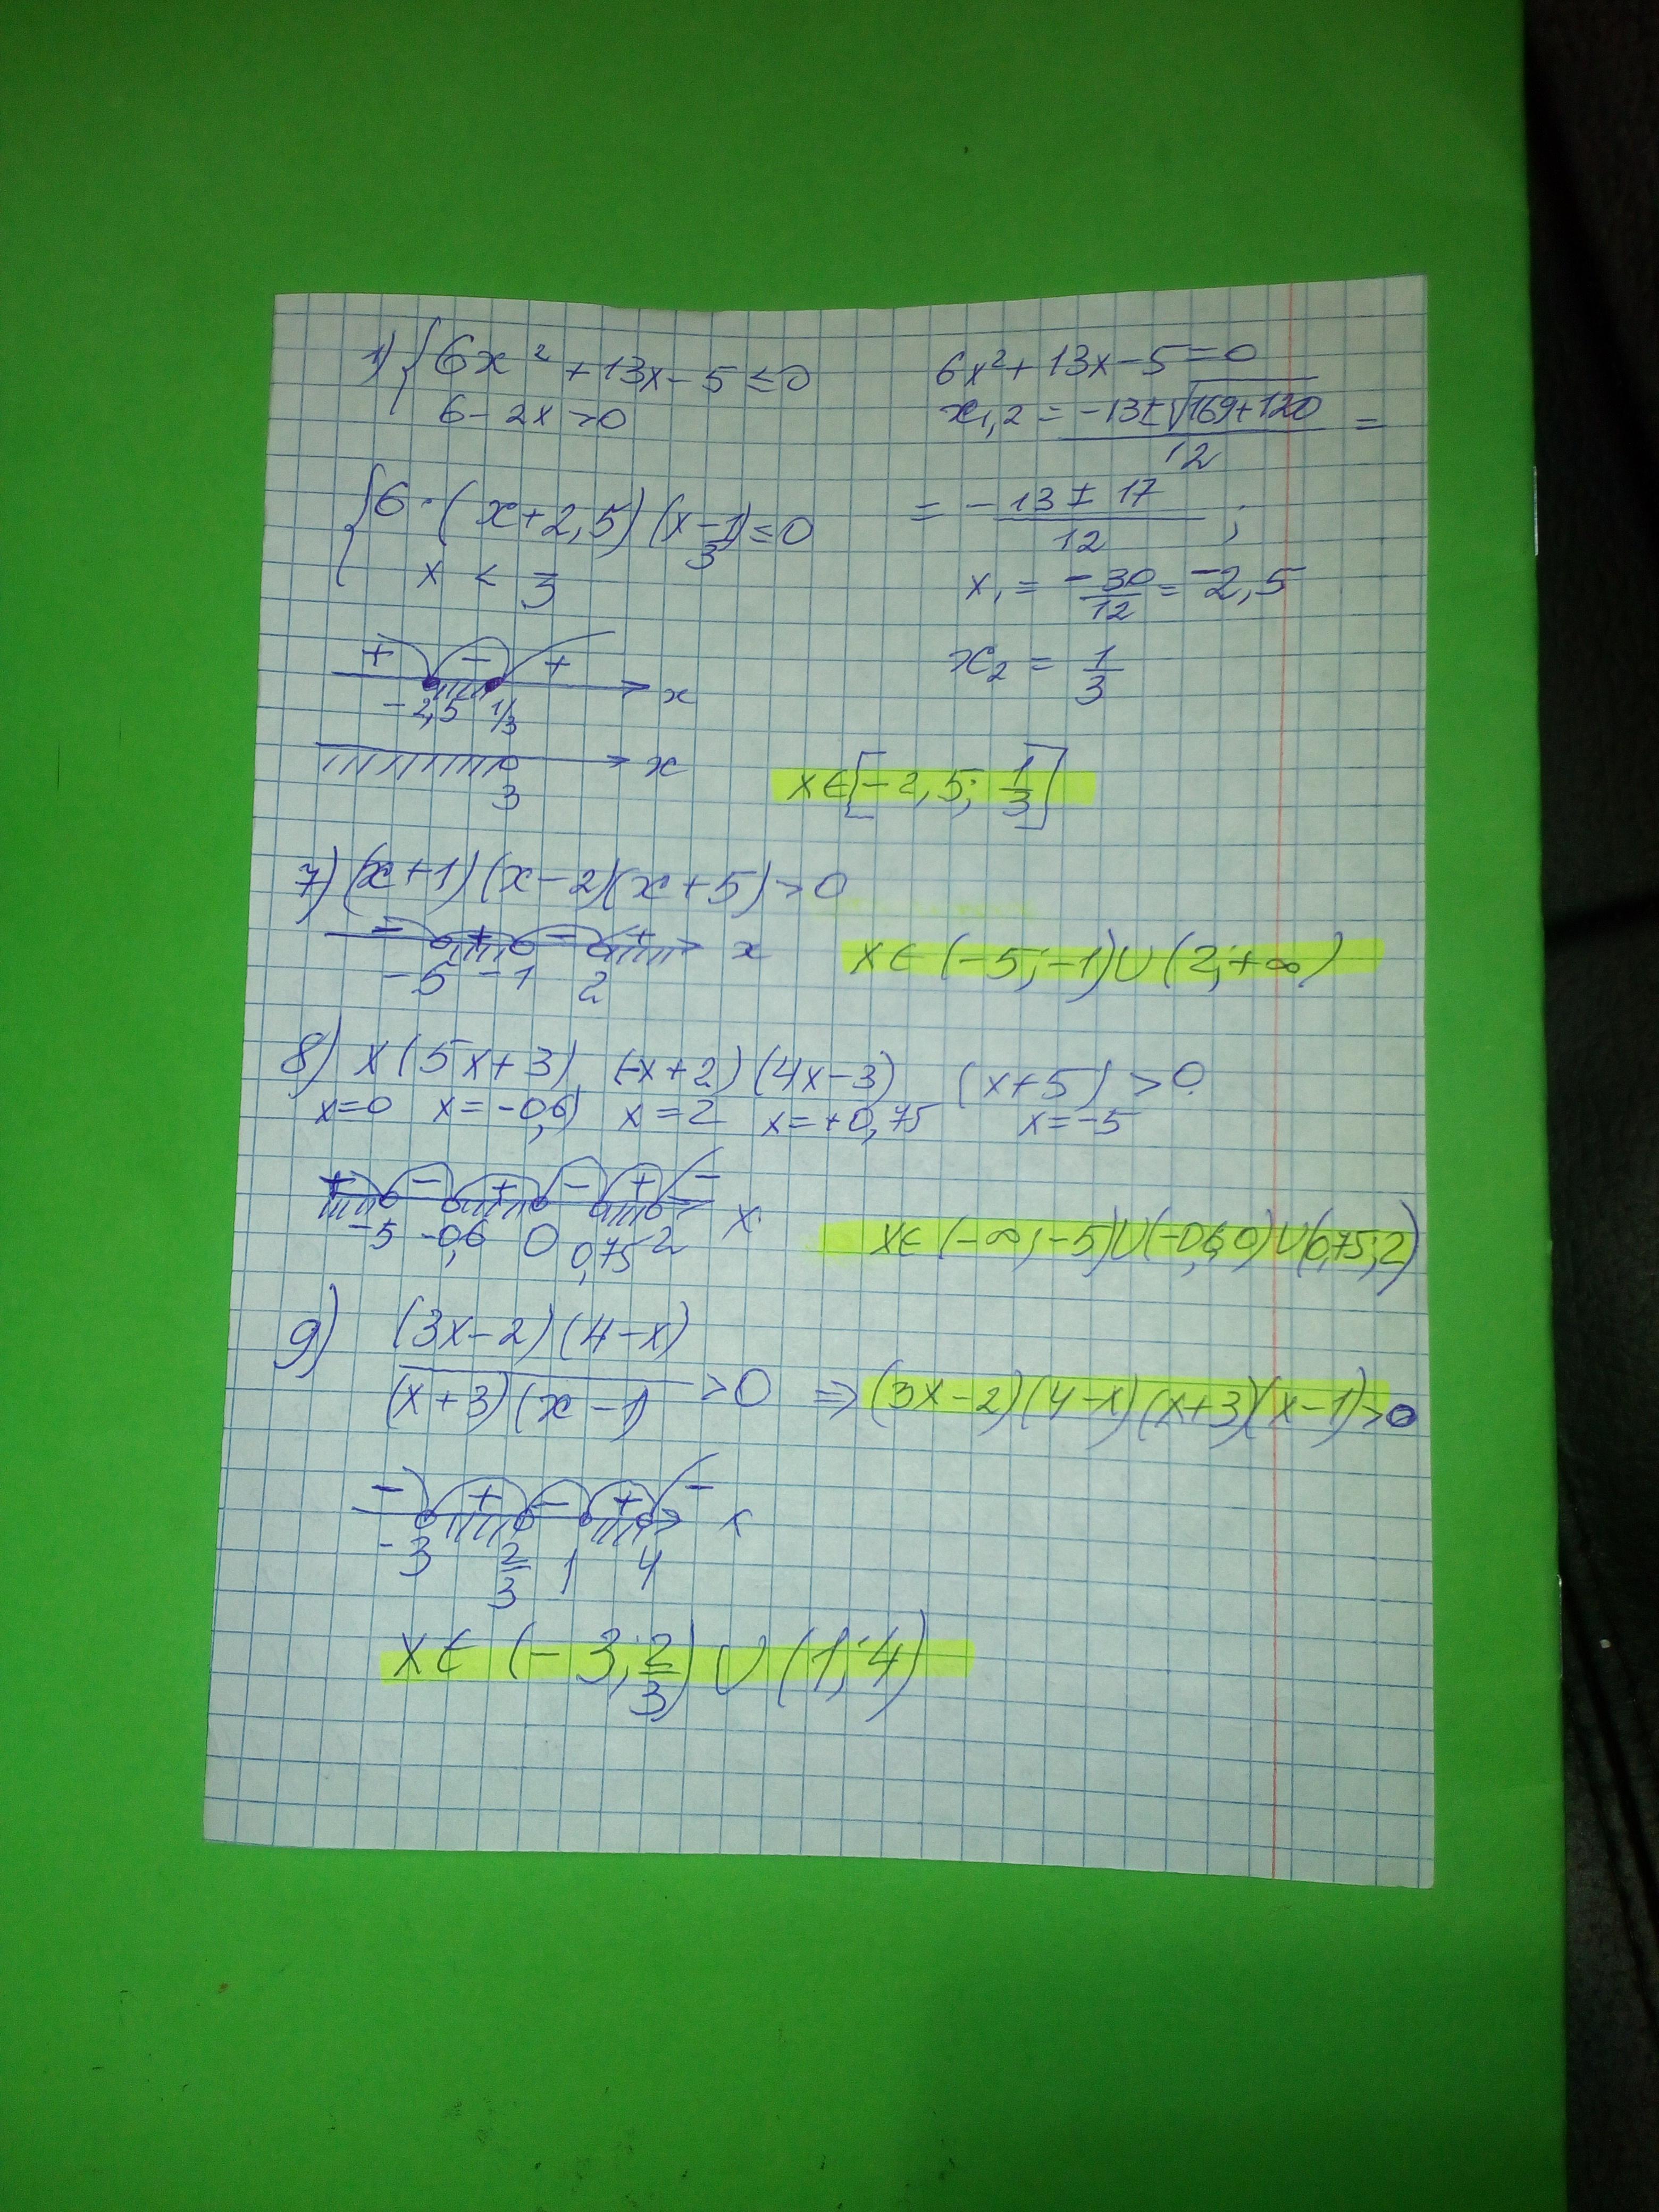 1) { 6x² + 13x - 5 ≤ 0
6 - 2x > 0
6x² + 13x - 5 = 0
x₁,₂ = (-13 ± √(169+120)) / 12 =
= (-13 ± 17) / 12 ;
x₁ = -30/12 = -2,5
x₂ = 1/3
{ 6 · (x + 2,5) (x - 1/3) ≤ 0
x < 3
+ - + x
-2,5 1/3
x
3
x ∈ [-2,5; 1/3]
7) (x+1) (x-2)(x+5) > 0
- + - + x
-5 -1 2
x ∈ (-5; -1) ∪ (2; +∞)
8) x (5x+3) (-x+2) (4x-3) (x+5) > 0
x=0 x=-0,6 x=2 x=+0,75 x=-5
+ - + - + - x
-5 -0,6 0 0,75 2
x ∈ (-∞; -5) ∪ (-0,6; 0) ∪ (0,75; 2)
9) (3x-2)(4-x) / (x+3)(x-1) > 0 ⇒ (3x-2)(4-x)(x+3)(x-1) > 0
- + - + - x
-3 2/3 1 4
x ∈ (-3; 2/3) ∪ (1; 4)